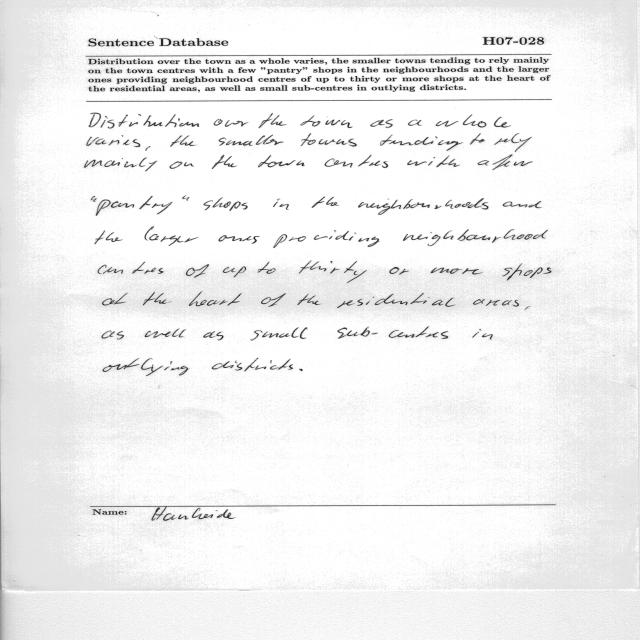 Sentence Database H07-028
Distribution over the town as a whole varies, the smaller towns tending to rely mainly
on the town centres with a few "pantry" shops in the neighbourhoods and the larger
ones providing neighbourhood centres of up to thirty or more shops at the heart of
the residential areas, as well as small sub-centres in outlying districts.
Distribution over the town as a whole
varies, the smaller towns tending to rely
mainly on the town centres with a few
"pantry" shops in the neighbourhoods and
the larger ones providing neighbourhood
centres of up to thirty or more shops
at the heart of the residential areas,
as well as small sub-centres in
outlying districts.
Name: Hanheide